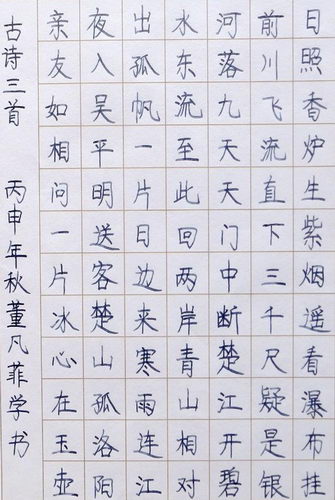 日照香炉生紫烟遥看瀑布挂
前川飞流直下三千尺疑是银
河落九天天门中断楚江开碧
水东流至此回两岸青山相对
出孤帆一片日边来寒雨连江
夜入吴平明送客楚山孤洛阳
亲友如相问一片冰心在玉壶
古诗三首 丙申年秋董凡菲学书